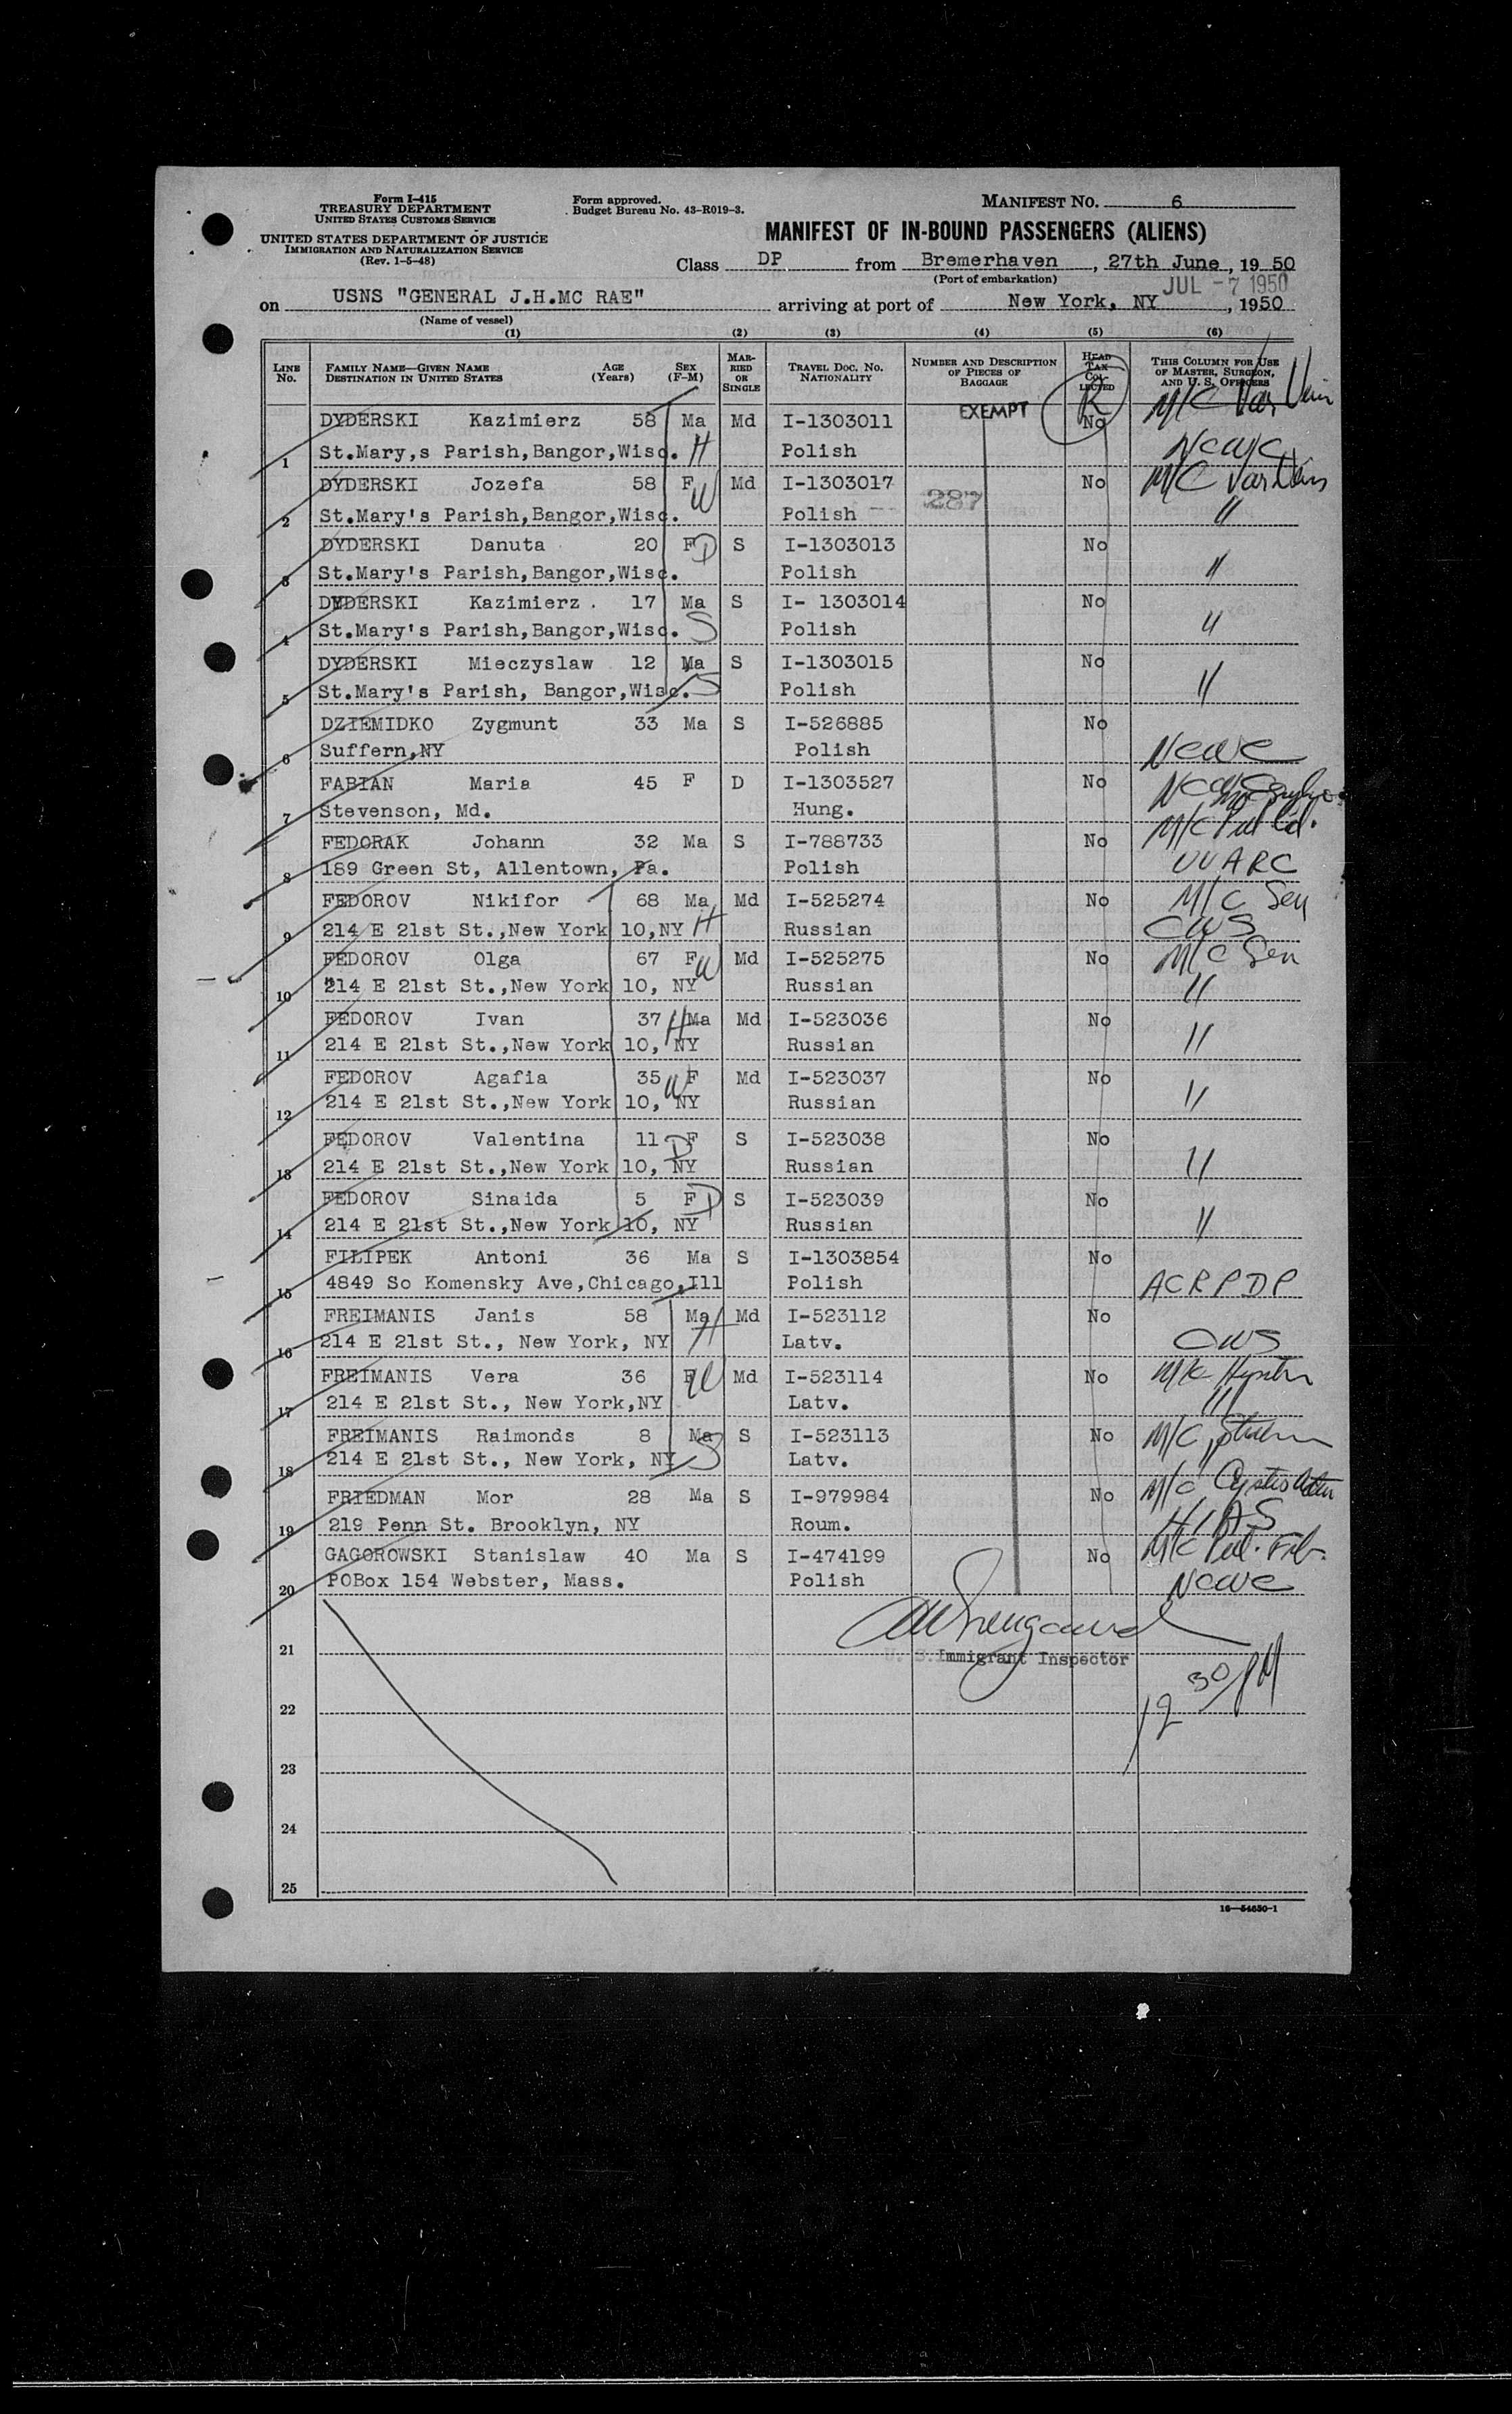 Form I-415
TREASURY DEPARTMENT
UNITED STATES CUSTOMS SERVICE
UNITED STATES DEPARTMENT OF JUSTICE
IMMIGRATION AND NATURALIZATION SERVICE
(Rev. 1-5-48)
Form approved.
Budget Bureau No. 43-R019-3.
MANIFEST NO. 6
MANIFEST OF IN-BOUND PASSENGERS (ALIENS)
Class DP from Bremerhaven, 27th June, 1950
(Port of embarkation)
JUL -7 1950
on USNS "GENERAL J.H.MC RAE" arriving at port of New York, NY, 1950
(Name of vessel)
(1) (2) (3) (4) (5) (6)
LINE No. FAMILY NAME—GIVEN NAME DESTINATION IN UNITED STATES AGE (Years) SEX (F-M) MARRIED OR SINGLE TRAVEL DOC. NO. NATIONALITY NUMBER AND DESCRIPTION OF PIECES OF BAGGAGE HEAD TAX COLLECTED THIS COLUMN FOR USE OF MASTER, SURGEON, AND U. S. OFFICERS
DYDERSKI Kazimierz 58 Ma Md I-1303011 EXEMPT No R M/C Var Vein
1 St.Mary,s Parish,Bangor,Wisc. H Polish NCWC
DYDERSKI Jozefa 58 F W Md I-1303017 287 No M/C Var Veins
2 St.Mary's Parish,Bangor,Wisc. Polish "
DYDERSKI Danuta 20 F D S I-1303013 No
3 St.Mary's Parish,Bangor,Wisc. Polish "
DYDERSKI Kazimierz. 17 Ma S I- 1303014 No
4 St.Mary's Parish,Bangor,Wisc. S Polish "
DYDERSKI Mieczyslaw 12 Ma S I-1303015 No
5 St.Mary's Parish, Bangor,Wisc. S Polish "
DZIEMIDKO Zygmunt 33 Ma S I-526885 No
6 Suffern,NY Polish NCWC
FABIAN Maria 45 F D I-1303527 No NCWC
7 Stevenson, Md. Hung.
FEDORAK Johann 32 Ma S I-788733 No M/C
8 189 Green St, Allentown, Pa. Polish UUARC
FEDOROV Nikifor 68 Ma Md I-525274 No M/C Sen
9 214 E 21st St.,New York 10,NY H Russian CWS
FEDOROV Olga 67 F W Md I-525275 No M/C Sen
10 214 E 21st St.,New York 10, NY Russian "
FEDOROV Ivan 37 H Ma Md I-523036 No
11 214 E 21st St.,New York 10, NY Russian "
FEDOROV Agafia 35 W F Md I-523037 No
12 214 E 21st St.,New York 10, NY Russian "
FEDOROV Valentina 11 D F S I-523038 No
13 214 E 21st St.,New York 10, NY Russian "
FEDOROV Sinaida 5 F D S I-523039 No
14 214 E 21st St.,New York 10, NY Russian "
FILIPEK Antoni 36 Ma S I-1303854 No
15 4849 So Komensky Ave,Chicago,Ill Polish ACRPDP
FREIMANIS Janis 58 Ma Md I-523112 No
16 214 E 21st St., New York, NY H Latv. CWS
FREIMANIS Vera 36 F W Md I-523114 No M/C
17 214 E 21st St., New York,NY Latv. "
FREIMANIS Raimonds 8 Ma S I-523113 No M/C
18 214 E 21st St., New York, NY S Latv. "
FRIEDMAN Mor 28 Ma S I-979984 No M/C
19 219 Penn St. Brooklyn, NY Roum. HIAS
GAGOROWSKI Stanislaw 40 Ma S I-474199 No M/C Pul. Fib.
20 POBox 154 Webster, Mass. Polish NCWC
21
U. S. Immigrant Inspector
12 30 PM
22
23
24
25
16—54650-1